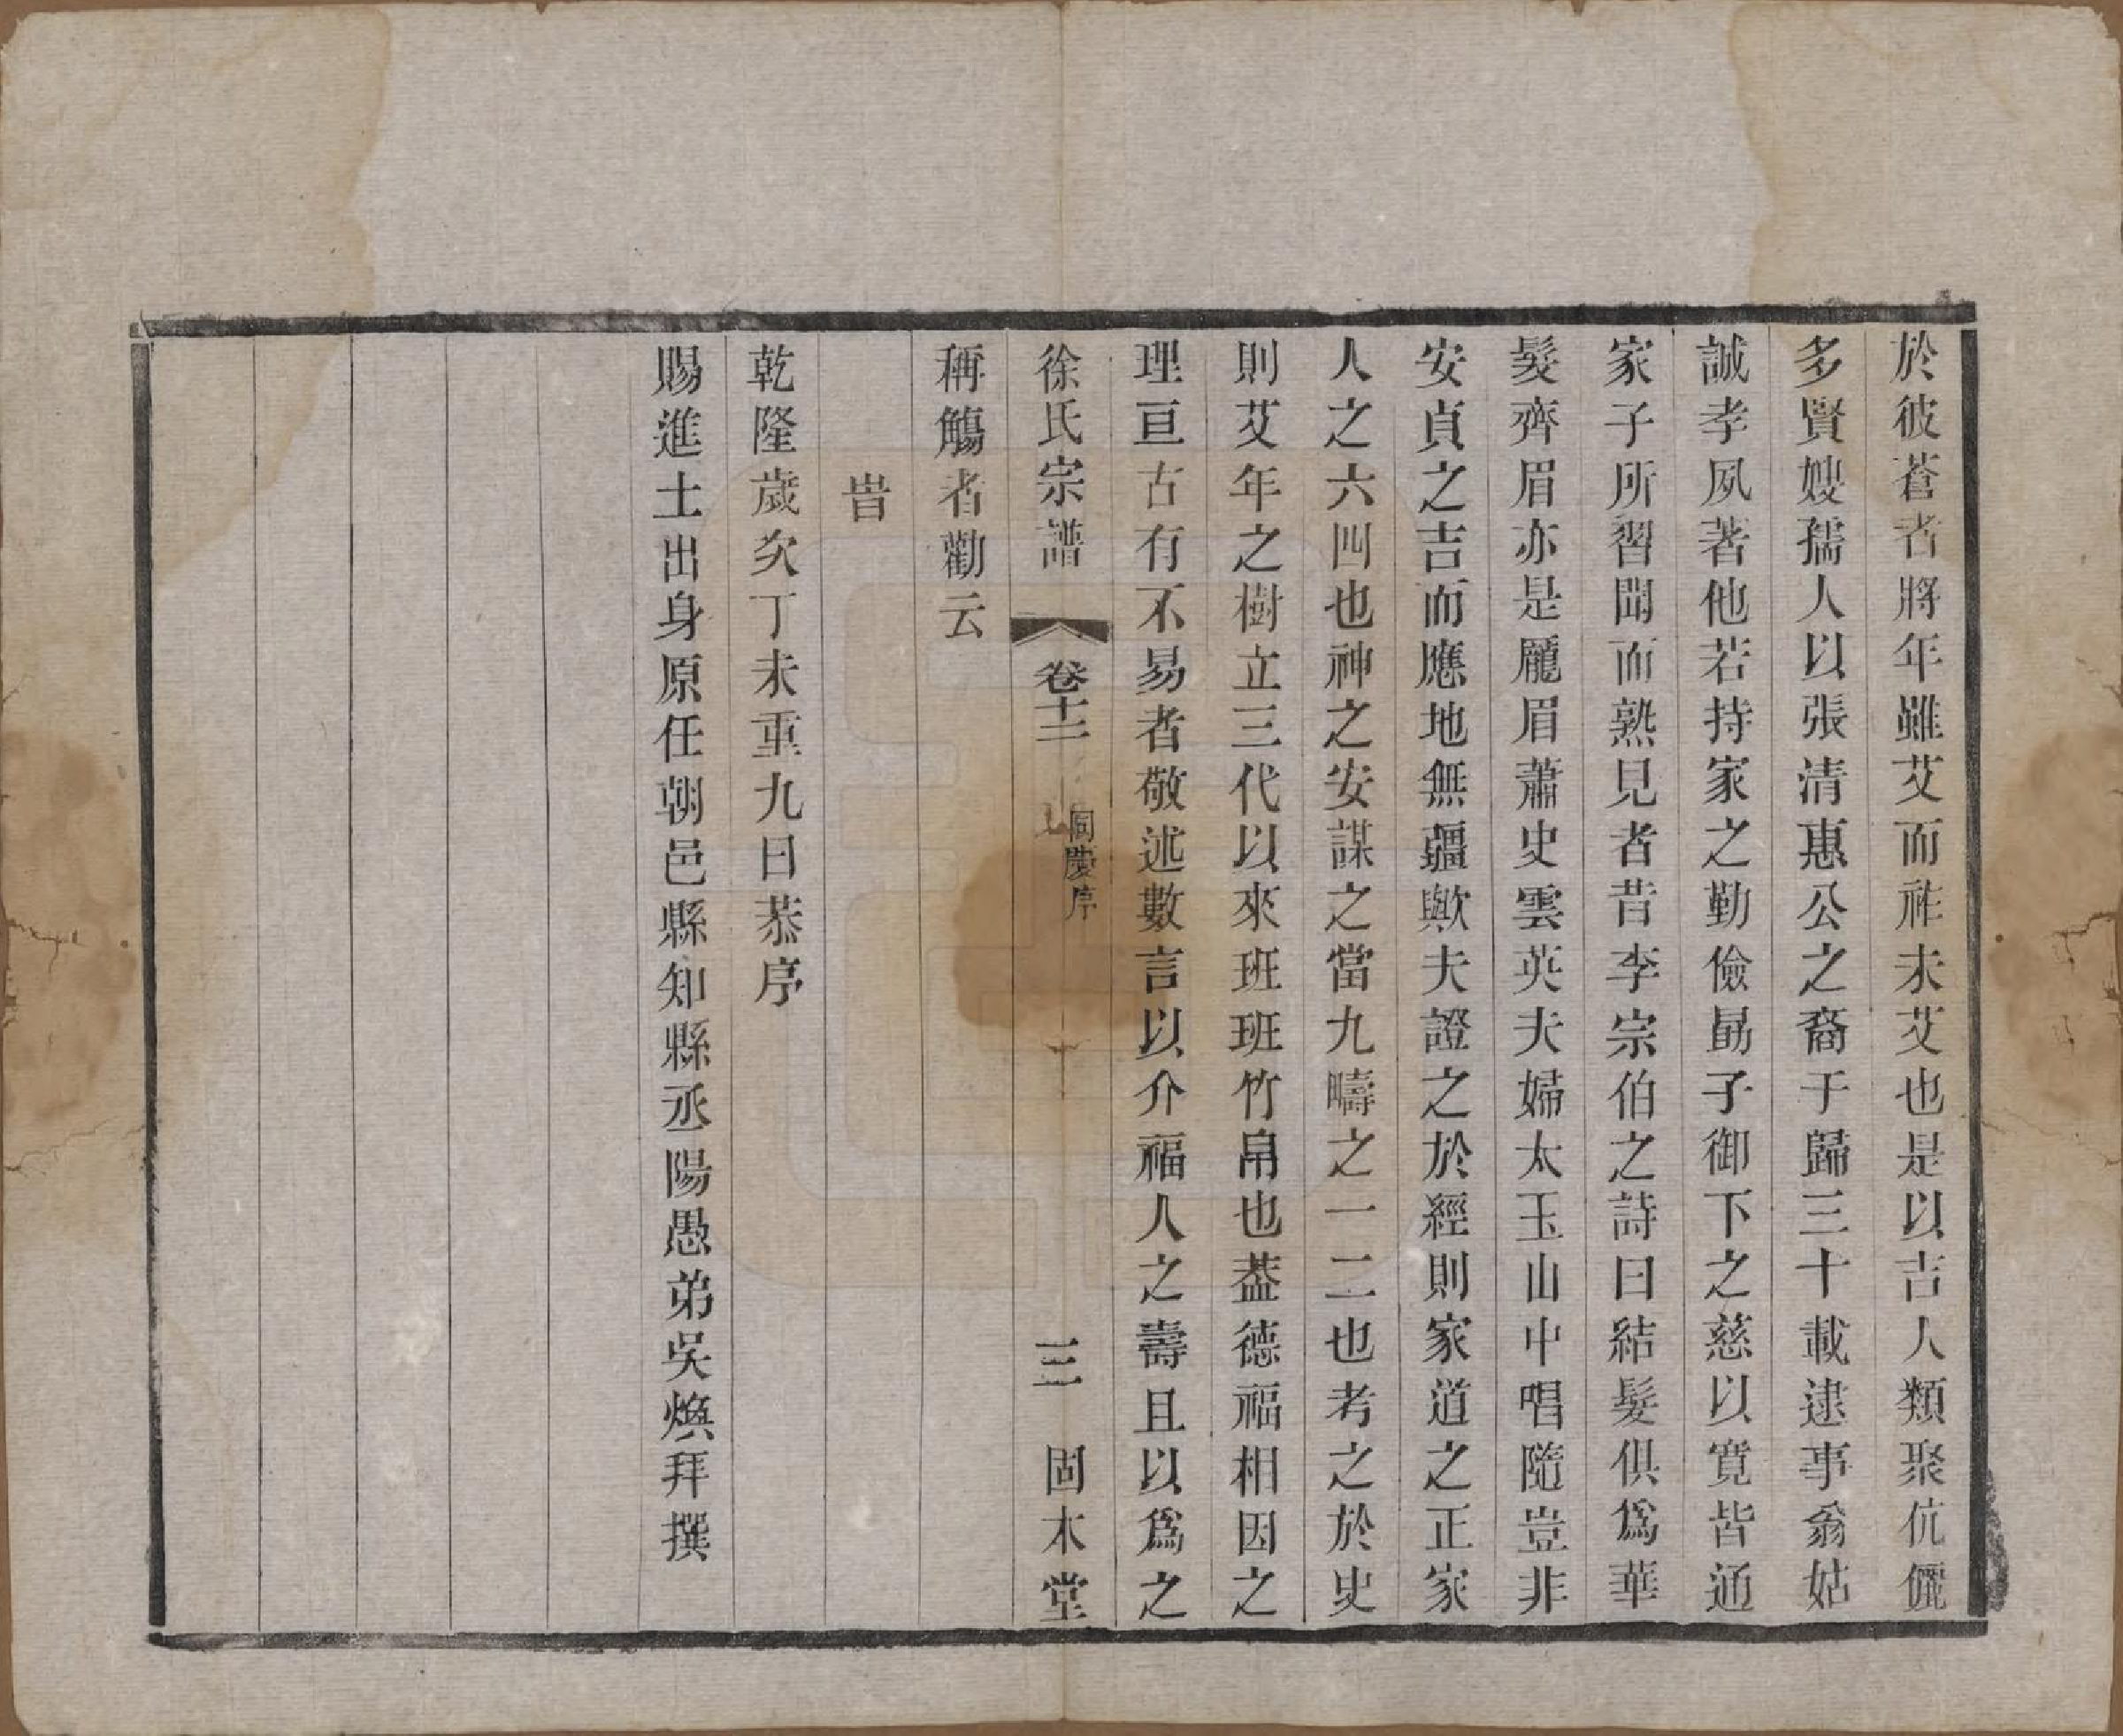 於彼蒼者將年雖艾而祚未艾也是以吉人類聚伉儷
多賢嫂孺人以張清惠公之裔于歸三十載逮事翁姑
誠孝夙著他若持家之勤儉勗子御下之慈以寬皆通
家子所習聞而熟見者昔李宗伯之詩曰結髮俱爲華
髮齊眉亦是龎眉蕭史雲英夫婦太玉山中唱隨豈非
安貞之吉而應地無疆歟夫證之於經則家道之正家
人之六四也神之安謀之當九疇之一二也考之於史
則艾年之樹立三代以來班班竹帛也葢德福相因之
理亘古有不易者敬述數言以介福人之壽且以爲之
徐氏宗譜
卷十二
同慶序
三
固木堂
稱觴者勸云
旹
乾隆歲次丁未重九日恭序
賜進士出身原任朝邑縣知縣丞陽愚弟吳煥拜撰